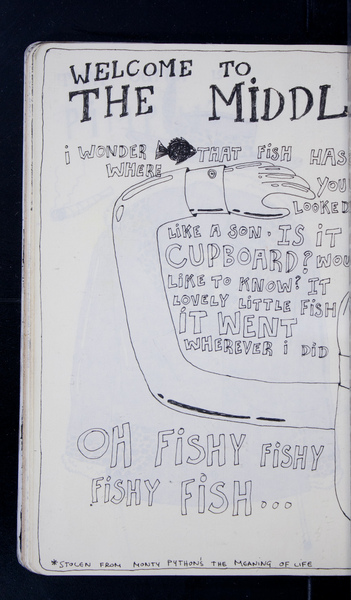 WELCOME TO
THE MIDDL
i WONDER THAT FiSH HAS
WHERE YOU
LOOKED
LiKE A SON. IS iT
CUPBOARD? WOU
LiKE TO KNOW? IT
LOVELY LiTTLE FiSH
iT WENT
WHEREVER i DiD
OH FiSHY FiSHY
FiSHY FiSH...
*STOLEN FROM MONTY PYTHON'S THE MEANING OF LIFE